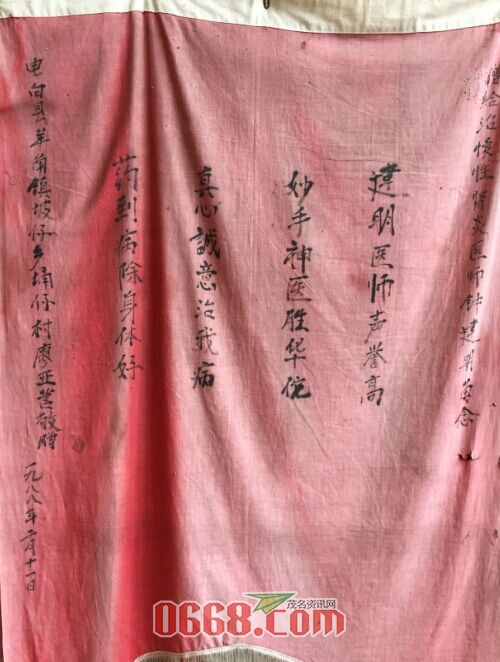 赠给治慢性肾炎医师钟建明留念
建明医师声誉高
妙手神医胜华佗
真心誠意治我病
药到病除身体好
电白县羊角镇坡仔乡埇仔村廖亚营敬赠
一九八八年二月十一日
茂名资讯网
0668.com